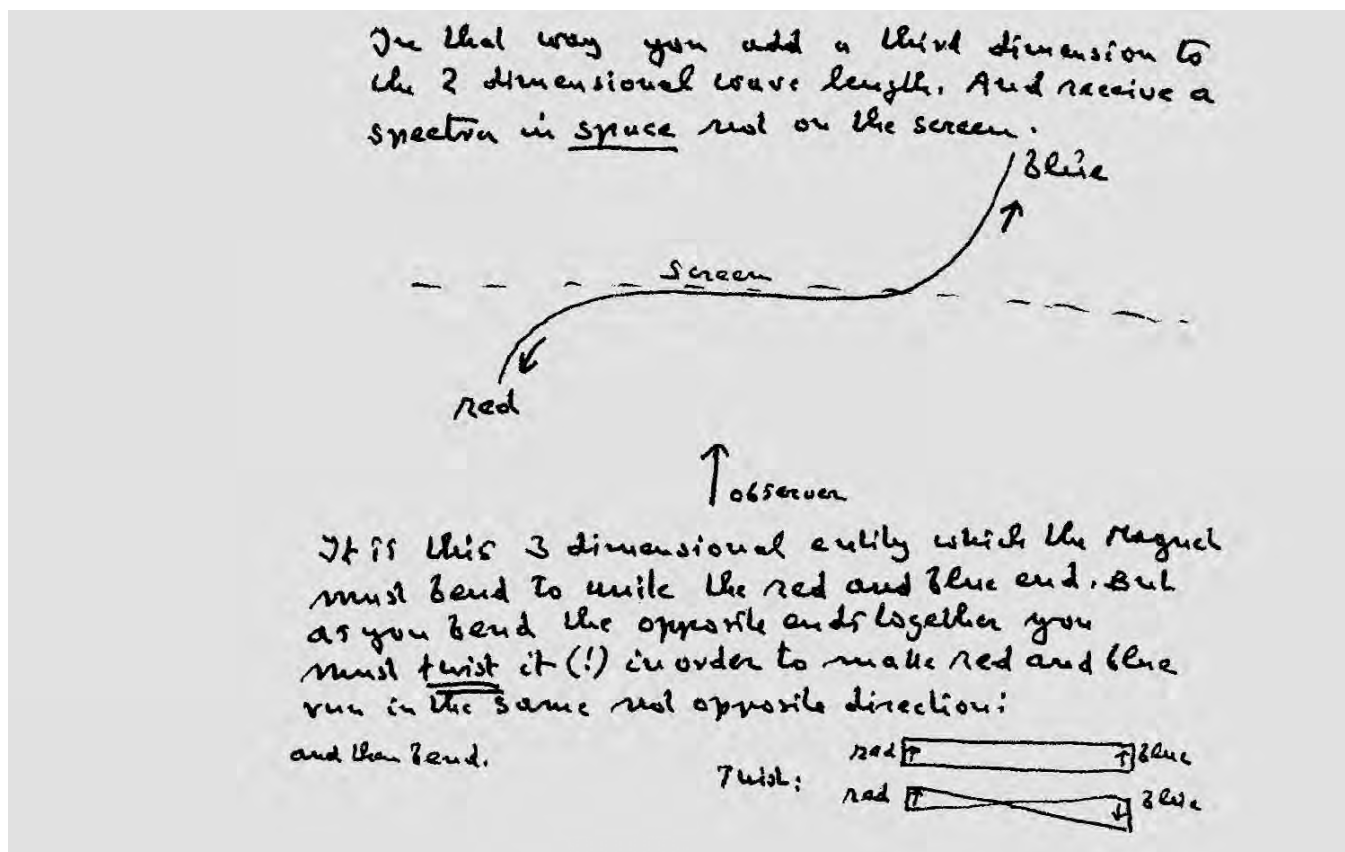 In that way you add a third dimension to
the 2 dimensional wave length. And receive a
spectra in space not on the screen.
Blue
screen
red
observer
It is this 3 dimensional entity which the Magnet
must bend to unite the red and blue end. But
as you bend the opposite ends together you
must twist it (!) in order to make red and blue
run in the same not opposite direction:
and then bend.
Twist:
red Blue
red Blue